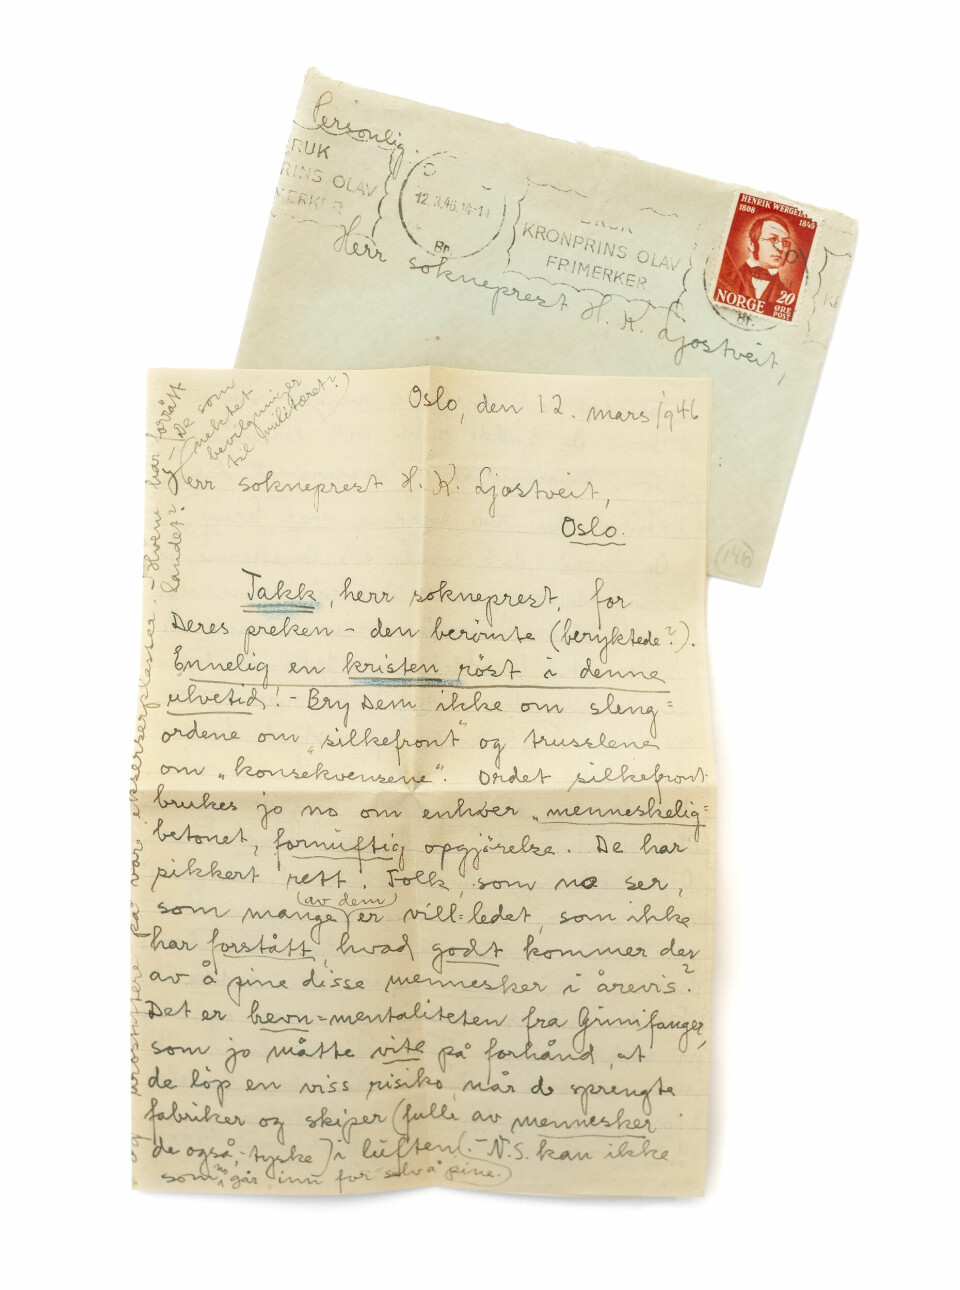 Personlig.
BRUK
PRINS OLAV
FRIMERKER
12.3.46.14-1
Br.
BRUK
KRONPRINS OLAV
FRIMERKER
HENRIK WERGELAND
1808 1845
NORGE 20
ØRE
POST
Br.
Herr sokneprest H. K. Ljostveit,
146
Oslo, den 12. mars 1946
Herr sokneprest H. K. Ljostveit,
Oslo.
Takk, herr sokneprest, for
Deres preken – den berömte (beryktede?).
Ennelig en kristen röst i denne
ulvetid! – Bry Dem ikke om sleng=
ordene om „silkefront" og trusslene
om „konsekvensene". Ordet silkefront
brukes jo no om enhver „menneskelig=
betonet, fornuftig opgjörelse. De har
sikkert rett. Folk, som no ser,
som mange (av dem) er vill=ledet, som ikke
har forstått, hvad godt kommer der
av å pine disse mennesker i årevis?
Det er hevn=mentaliteten fra Grinifanger,
som jo måtte vite på forhånd, at
de löp en viss risiko, når de sprengte
fabriker og skiper (fulle av mennesker
de også, – tyske) i luften. (– N.S. kan ikke
som no går inn for selv å pine.)
og urostiftere på våre ekserserplasser. – Hvem har forrått
landet? – (De som
nektet
bevilgninger
til militæret?)